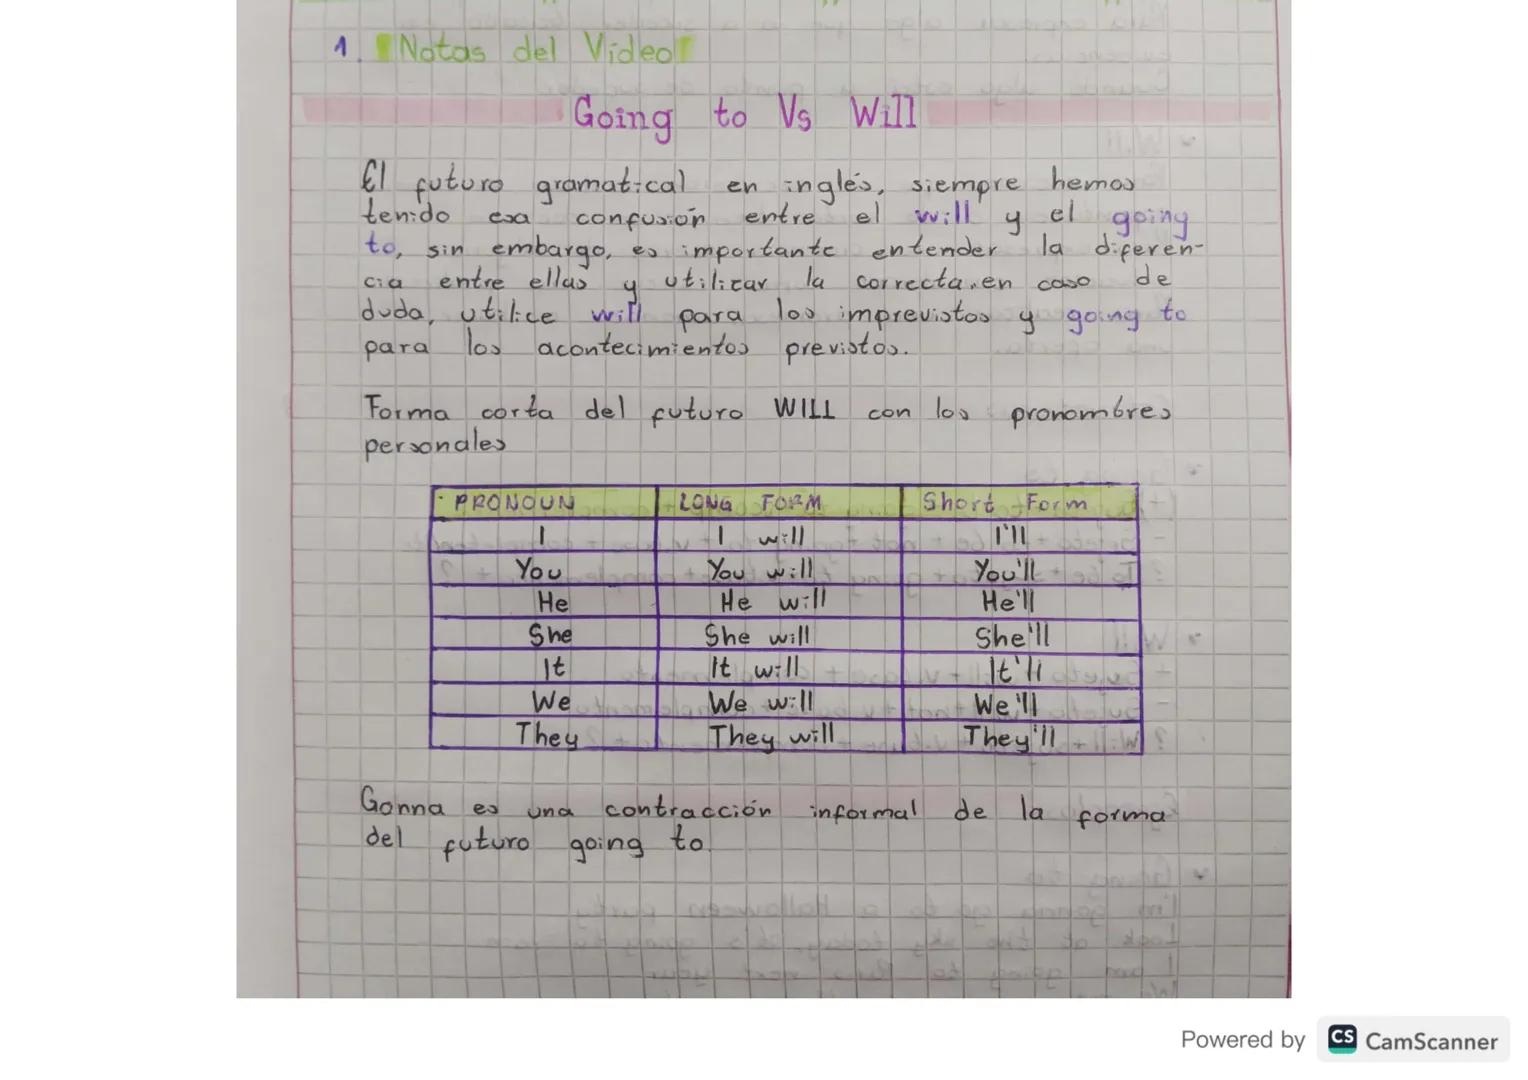 1. Notas del Video
Going to Vs Will
El futuro gramatical en inglés, siempre hemos
tenido esa confusión entre el will y el going
to, sin embargo, es importante entender la diferen-
cia entre ellas y utilizar la correcta, en caso de
duda, utilice will para los imprevistos y going to
para los acontecimientos previstos.
Forma corta del futuro WILL con los pronombres
personales
PRONOUN LONG FORM Short Form
I I will I'll
You You will You'll
He He will He'll
She She will She'll
It It will It'll
We We will We'll
They They will They'll
Gonna es una contracción informal de la forma
del futuro going to.
Powered by CS CamScanner